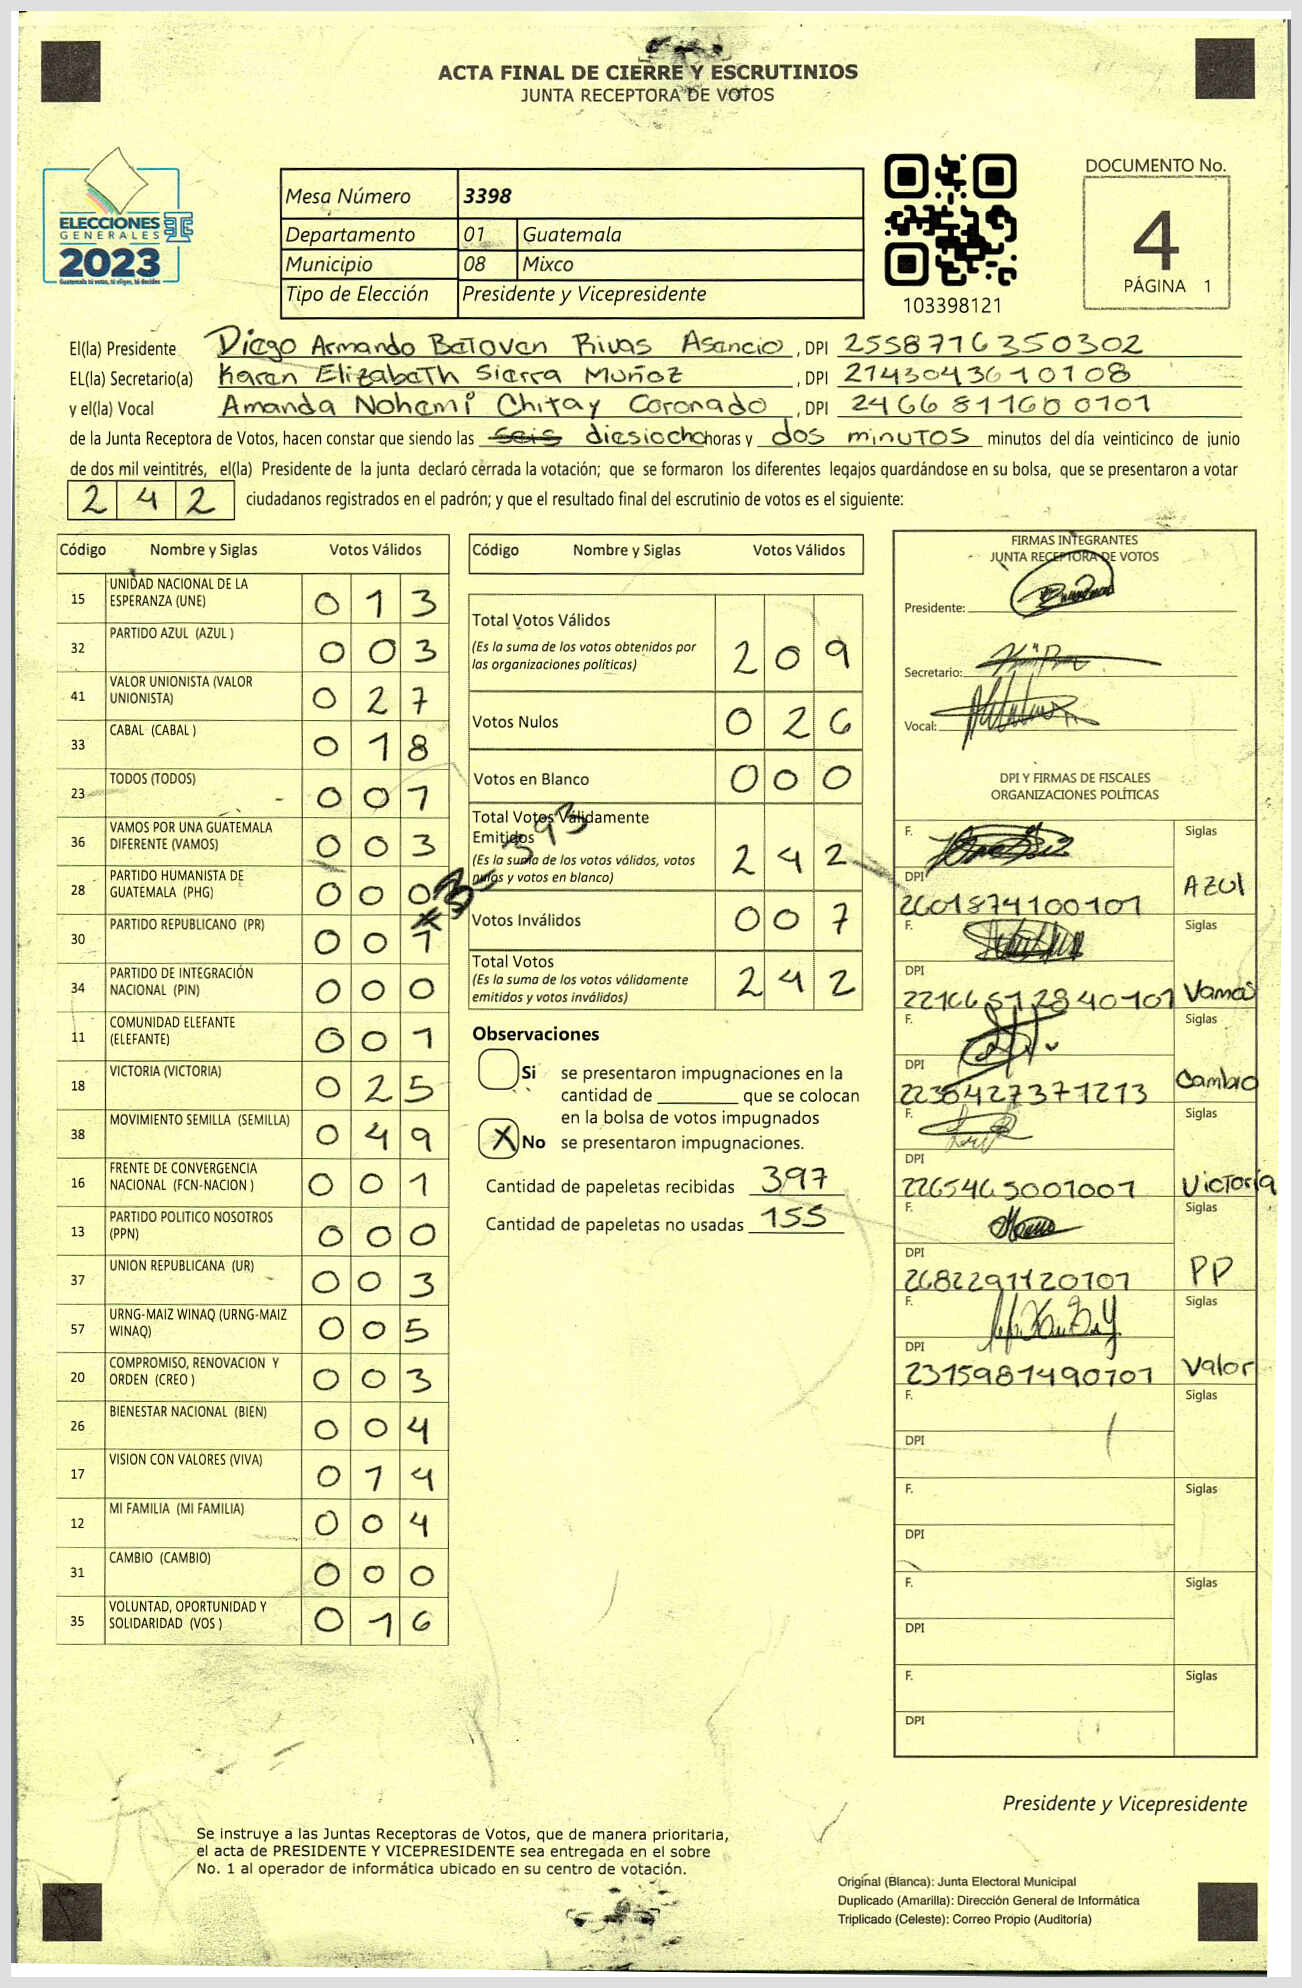 ACTA FINAL DE CIERRE Y ESCRUTINIOS
JUNTA RECEPTORA DE VOTOS
ELECCIONES
GENERALES
2023
Guatemala tú votas, tú eliges, tú decides
Mesa Número 3398
Departamento 01 Guatemala
Municipio 08 Mixco
Tipo de Elección Presidente y Vicepresidente
103398121
DOCUMENTO No.
4
PÁGINA 1
El(la) Presidente Diego Armando Betoven Rivas Asencio, DPI 2558716350302
EL(la) Secretario(a) Karen Elizabeth Sierra Muñoz, DPI 2143043610108
y el(la) Vocal Amanda Nohemi Chitay Coronado, DPI 2466811600101
de la Junta Receptora de Votos, hacen constar que siendo las seis diesiocho horas y dos minutos minutos del día veinticinco de junio
de dos mil veintitrés, el(la) Presidente de la junta declaró cerrada la votación; que se formaron los diferentes legajos quardándose en su bolsa, que se presentaron a votar
242 ciudadanos registrados en el padrón; y que el resultado final del escrutinio de votos es el siguiente:
Código Nombre y Siglas Votos Válidos
15 UNIDAD NACIONAL DE LA ESPERANZA (UNE) 013
32 PARTIDO AZUL (AZUL ) 003
41 VALOR UNIONISTA (VALOR UNIONISTA) 027
33 CABAL (CABAL ) 018
23 TODOS (TODOS) 007
36 VAMOS POR UNA GUATEMALA DIFERENTE (VAMOS) 003
28 PARTIDO HUMANISTA DE GUATEMALA (PHG) 000
30 PARTIDO REPUBLICANO (PR) 001
34 PARTIDO DE INTEGRACIÓN NACIONAL (PIN) 000
11 COMUNIDAD ELEFANTE (ELEFANTE) 001
18 VICTORIA (VICTORIA) 025
38 MOVIMIENTO SEMILLA (SEMILLA) 049
16 FRENTE DE CONVERGENCIA NACIONAL (FCN-NACION ) 001
13 PARTIDO POLITICO NOSOTROS (PPN) 000
37 UNION REPUBLICANA (UR) 003
57 URNG-MAIZ WINAQ (URNG-MAIZ WINAQ) 005
20 COMPROMISO, RENOVACION Y ORDEN (CREO ) 003
26 BIENESTAR NACIONAL (BIEN) 004
17 VISION CON VALORES (VIVA) 014
12 MI FAMILIA (MI FAMILIA) 004
31 CAMBIO (CAMBIO) 000
35 VOLUNTAD, OPORTUNIDAD Y SOLIDARIDAD (VOS ) 016
Código Nombre y Siglas Votos Válidos
Total Votos Válidos 209
(Es la suma de los votos obtenidos por
las organizaciones políticas)
Votos Nulos 026
Votos en Blanco 000
Total Votos Válidamente
Emitidos 242
(Es la suma de los votos válidos, votos
nulos y votos en blanco)
Votos Inválidos 007
Total Votos 242
(Es la suma de los votos válidamente
emitidos y votos inválidos)
Observaciones
Si se presentaron impugnaciones en la
cantidad de ________ que se colocan
en la bolsa de votos impugnados
X No se presentaron impugnaciones.
Cantidad de papeletas recibidas 397
Cantidad de papeletas no usadas 155
FIRMAS INTEGRANTES
JUNTA RECEPTORA DE VOTOS
Presidente:
Secretario:
Vocal:
DPI Y FIRMAS DE FISCALES
ORGANIZACIONES POLÍTICAS
F. Siglas
DPI 2601874100101 AZUl
F. Siglas
DPI 22166512840101 Vamos
F. Siglas
DPI 2236427371213 Cambio
F. Siglas
DPI 2265465001001 Victoria
F. Siglas
DPI 2682291120101 PP
F. Siglas
DPI 2315981490101 Valor
F. Siglas
DPI
F. Siglas
DPI
F. Siglas
DPI
F. Siglas
DPI
Presidente y Vicepresidente
Se instruye a las Juntas Receptoras de Votos, que de manera prioritaria,
el acta de PRESIDENTE Y VICEPRESIDENTE sea entregada en el sobre
No. 1 al operador de informática ubicado en su centro de votación.
Original (Blanca): Junta Electoral Municipal
Duplicado (Amarilla): Dirección General de Informática
Triplicado (Celeste): Correo Propio (Auditoría)